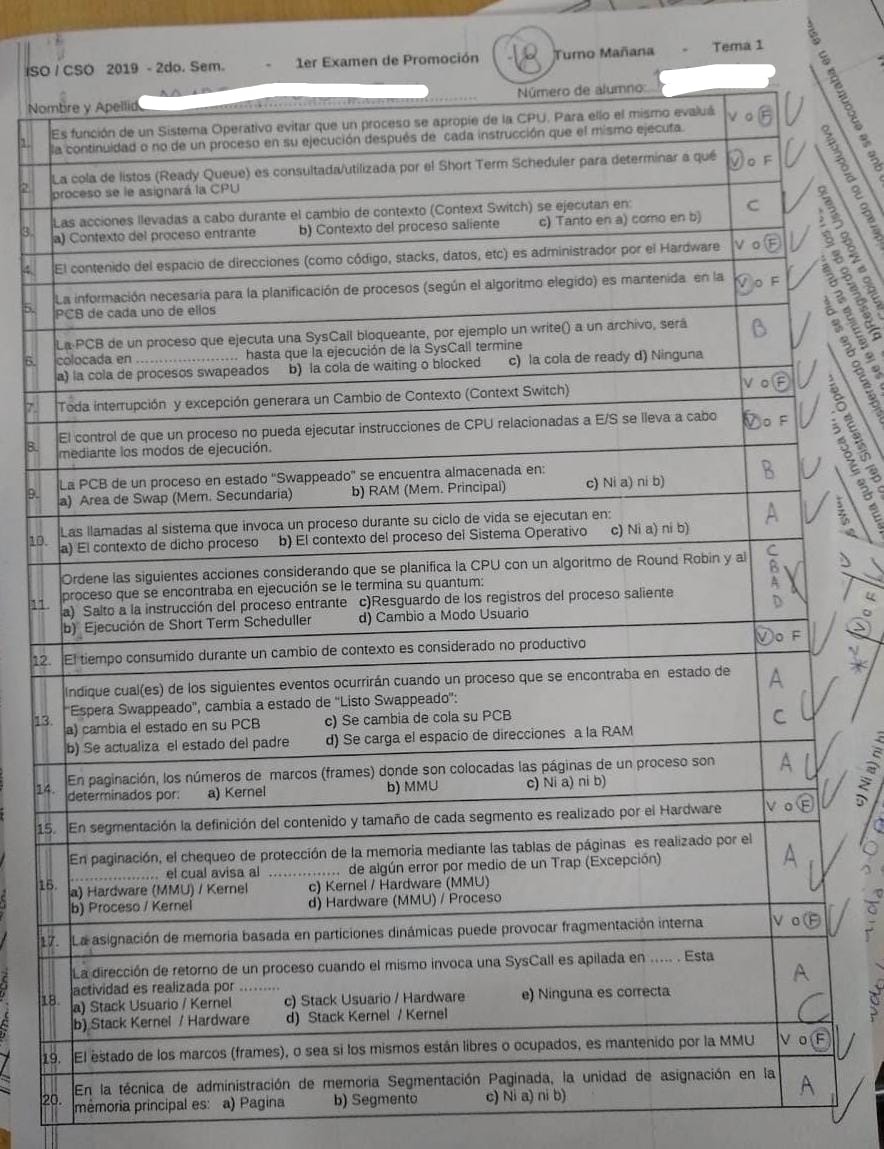 ISO / CSO 2019 - 2do. Sem. - 1er Examen de Promoción 18 Turno Mañana - Tema 1
Nombre y Apellid Número de alumno:
1. Es función de un Sistema Operativo evitar que un proceso se apropie de la CPU. Para ello el mismo evaluá V o F
la continuidad o no de un proceso en su ejecución después de cada instrucción que el mismo ejecuta.
2. La cola de listos (Ready Queue) es consultada/utilizada por el Short Term Scheduler para determinar a qué V o F
proceso se le asignará la CPU
3. Las acciones llevadas a cabo durante el cambio de contexto (Context Switch) se ejecutan en: C
a) Contexto del proceso entrante b) Contexto del proceso saliente c) Tanto en a) como en b)
4. El contenido del espacio de direcciones (como código, stacks, datos, etc) es administrador por el Hardware V o F
5. La información necesaria para la planificación de procesos (según el algoritmo elegido) es mantenida en la V o F
PCB de cada uno de ellos
6. La PCB de un proceso que ejecuta una SysCall bloqueante, por ejemplo un write() a un archivo, será B
colocada en ..................... hasta que la ejecución de la SysCall termine
a) la cola de procesos swapeados b) la cola de waiting o blocked c) la cola de ready d) Ninguna
7. Toda interrupción y excepción generara un Cambio de Contexto (Context Switch) V o F
8. El control de que un proceso no pueda ejecutar instrucciones de CPU relacionadas a E/S se lleva a cabo V o F
mediante los modos de ejecución.
9. La PCB de un proceso en estado "Swappeado" se encuentra almacenada en: B
a) Area de Swap (Mem. Secundaria) b) RAM (Mem. Principal) c) Ni a) ni b)
10. Las llamadas al sistema que invoca un proceso durante su ciclo de vida se ejecutan en: A
a) El contexto de dicho proceso b) El contexto del proceso del Sistema Operativo c) Ni a) ni b)
11. Ordene las siguientes acciones considerando que se planifica la CPU con un algoritmo de Round Robin y al C
proceso que se encontraba en ejecución se le termina su quantum: B
a) Salto a la instrucción del proceso entrante c)Resguardo de los registros del proceso saliente A
b) Ejecución de Short Term Scheduller d) Cambio a Modo Usuario D
12. El tiempo consumido durante un cambio de contexto es considerado no productivo V o F
13. Indique cual(es) de los siguientes eventos ocurrirán cuando un proceso que se encontraba en estado de A
"Espera Swappeado", cambia a estado de "Listo Swappeado":
a) cambia el estado en su PCB c) Se cambia de cola su PCB C
b) Se actualiza el estado del padre d) Se carga el espacio de direcciones a la RAM
14. En paginación, los números de marcos (frames) donde son colocadas las páginas de un proceso son A
determinados por: a) Kernel b) MMU c) Ni a) ni b)
15. En segmentación la definición del contenido y tamaño de cada segmento es realizado por el Hardware V o F
16. En paginación, el chequeo de protección de la memoria mediante las tablas de páginas es realizado por el A
.................. el cual avisa al ............... de algún error por medio de un Trap (Excepción)
a) Hardware (MMU) / Kernel c) Kernel / Hardware (MMU)
b) Proceso / Kernel d) Hardware (MMU) / Proceso
17. La asignación de memoria basada en particiones dinámicas puede provocar fragmentación interna V o F
18. La dirección de retorno de un proceso cuando el mismo invoca una SysCall es apilada en ..... . Esta A
actividad es realizada por .........
a) Stack Usuario / Kernel c) Stack Usuario / Hardware e) Ninguna es correcta C
b) Stack Kernel / Hardware d) Stack Kernel / Kernel
19. El estado de los marcos (frames), o sea si los mismos están libres o ocupados, es mantenido por la MMU V o F
20. En la técnica de administración de memoria Segmentación Paginada, la unidad de asignación en la A
memoria principal es: a) Pagina b) Segmento c) Ni a) ni b)